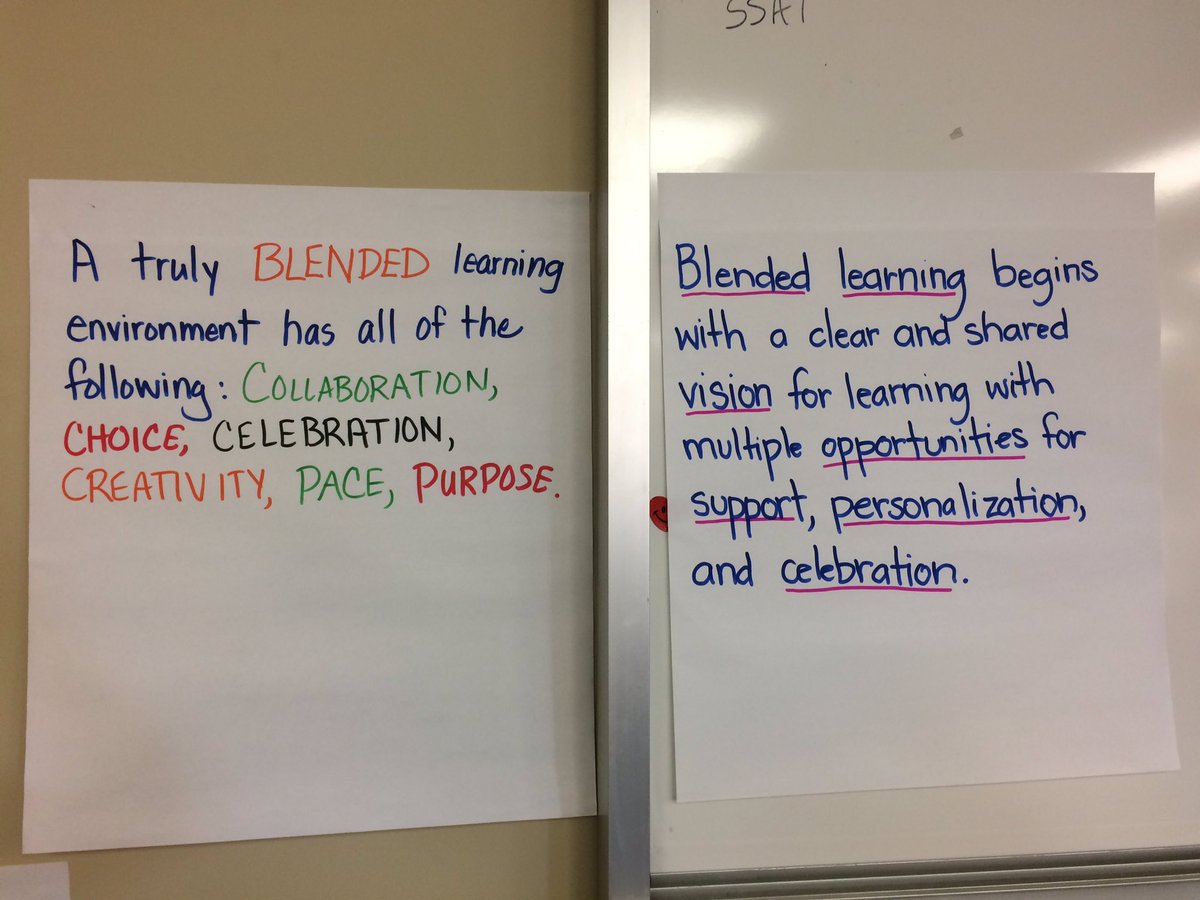 SSAT
A truly BLENDED learning
environment has all of the
following: COLLABORATION,
CHOICE, CELEBRATION,
CREATIVITY, PACE, PURPOSE.
Blended learning begins
with a clear and shared
vision for learning with
multiple opportunities for
support, personalization,
and celebration.